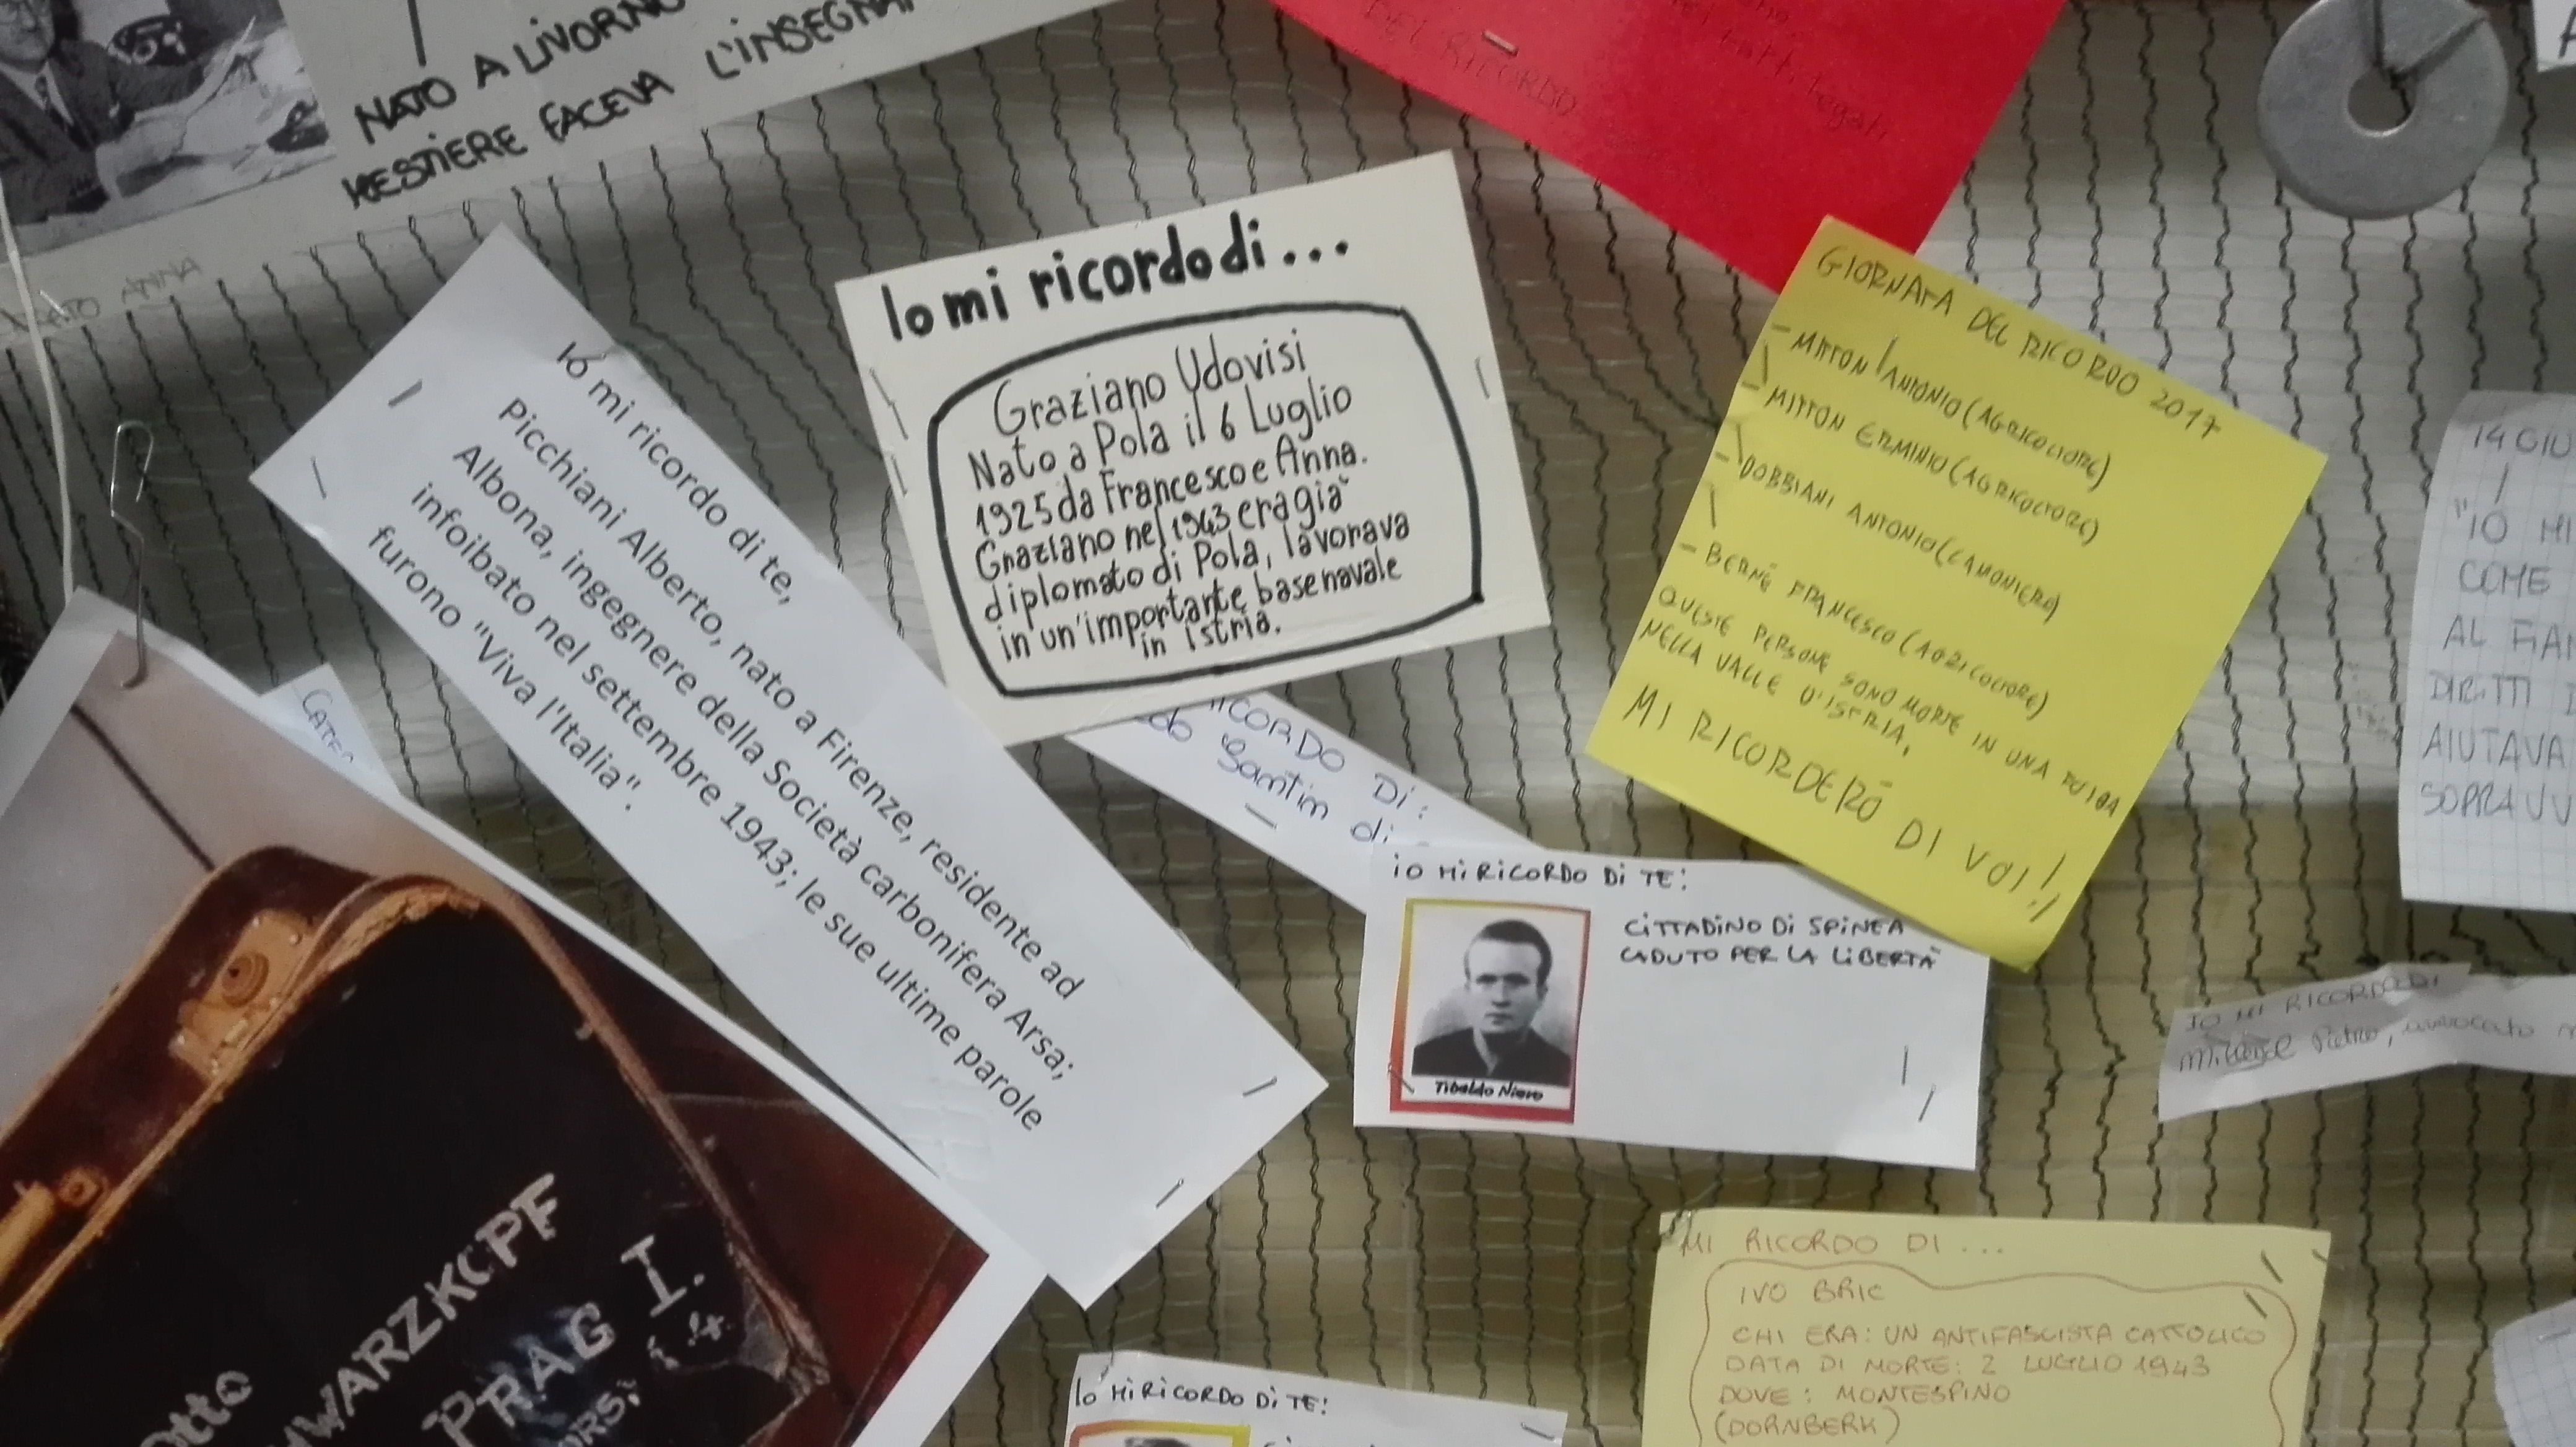 NATO A LIVORNO
MESTIERE FACEVA L'INSEGNA
ANNA
DEL RICORDO
Io mi ricordo di te,
Picchiani Alberto, nato a Firenze, residente ad
Albona, ingegnere della Società carbonifera Arsa;
infoibato nel settembre 1943; le sue ultime parole
furono "Viva l'Italia".
Io mi ricordo di...
Graziano Udovisi
Nato a Pola il 6 Luglio
1925 da Francesco e Anna.
Graziano nel 1943 era già
diplomato di Pola, lavorava
in un'importante base navale
in istria.
GIORNATA DEL RICORDO 2017
- MITTON ANTONIO (AGRICOLTORE)
- MITTON ERMINIO (AGRICOLTORE)
- DOBBIANI ANTONIO (CANONIERO)
- BERNÉ FRANCESCO (AGRICOLTORE)
QUESTE PERSONE SONO MORTE IN UNA FOIBA
NELLA VALLE D'ISTRIA,
MI RICORDERÒ DI VOI!!
14 GIU
"IO MI
COME
AL FIAN
DIRITTI D
AIUTAVA
SOPRAVV
RICORDO DI:
Santin di
iO Mi RiCORDO Di TE:
CiTTADiNO Di SPiNEA
CADUTO PER LA LiBERTÀ
Tibaldo Niero
IO MI RICORDO DI
Pietro, avvocato
Otto
HWARZKOPF
PRAG I.
IO Mi RiCORDO Di TE:
MI RICORDO DI ...
IVO BRIC
CHI ERA: UN ANTIFASCISTA CATTOLICO
DATA DI MORTE: 2 LUGLIO 1943
DOVE: MONTESPINO
(DORNBERK)